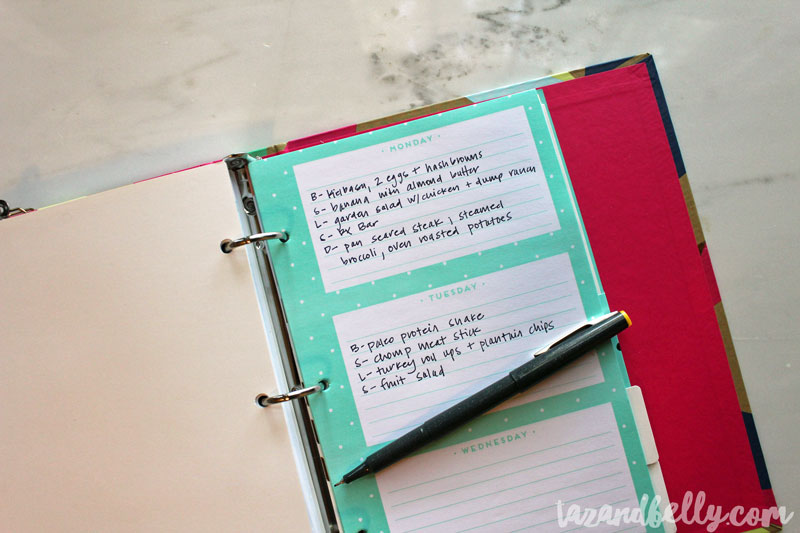 · MONDAY ·
B- Kielbasa, 2 eggs + hashbrowns
S- banana with almond butter
L- garden salad w/chicken + dump ranch
S- RX Bar
D- pan seared steak, steamed
broccoli, oven roasted potatoes
· TUESDAY ·
B- paleo protein shake
S- chomp meat stick
L- turkey roll ups + plantain chips
S- fruit salad
· WEDNESDAY ·
tazandbelly.com